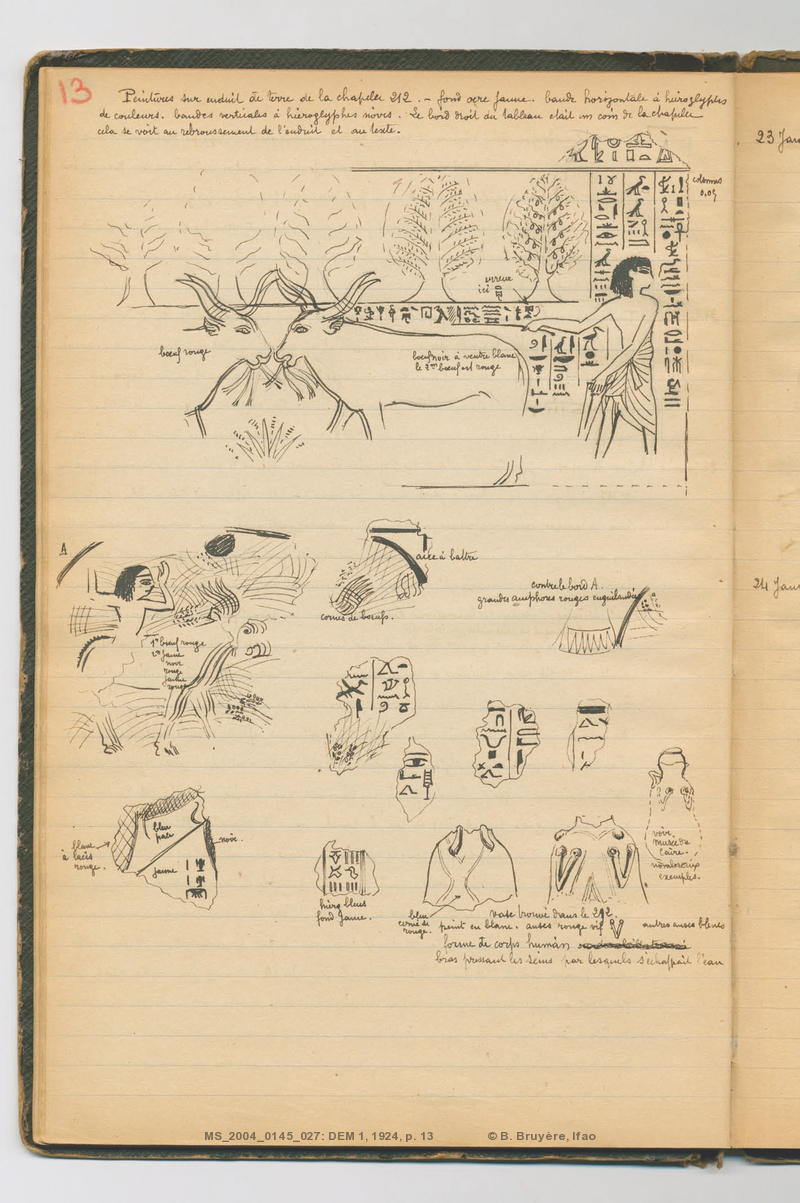 13
Peintures sur enduit de terre de la chapelle 212. – fond ocre jaune. bande horizontale à hiéroglyphes
de couleurs. bandes verticales à hiéroglyphes noirs. Le bord droit du tableau était un coin de la chapelle
cela se voit au rebroussement de l'enduit et au texte.
23 Jan
colonnes
0,05
erreur
ici
bœuf rouge
bœuf noir à ventre blanc
le 2me bœuf est rouge
A
aire à battre
cornes de bœufs.
contre le bord A.
grandes amphores rouges enguirlandées
24 Jan
1er bœuf rouge
2e jaune
noir
rouge
jaune
rouge
bleu
pale
noir.
blanc
à lacis
rouge.
jaune
voir
musée du
Caire.
nombreux
exemples.
hiérog bleus
fond jaune.
bleu
cerné de
rouge.
vase trouvé dans le 212
peint en blanc. anses rouge vif
autres anses bleues
forme de corps humain
bras pressant les seins par lesquels s'échappait l'eau
MS_2004_0145_027: DEM 1, 1924, p. 13
© B. Bruyère, Ifao